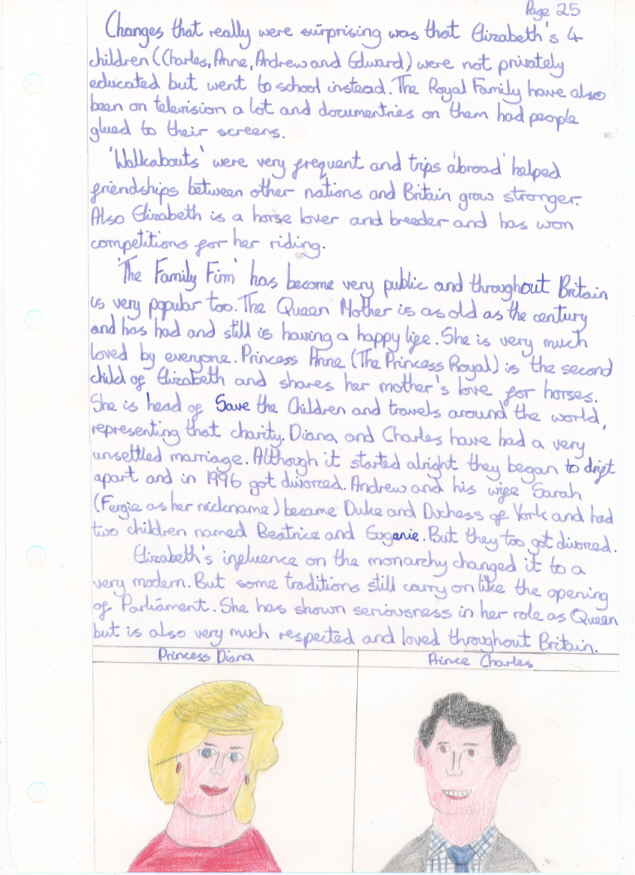 Page 25
Changes that really were surprising was that Elizabeth's 4
children (Charles, Anne, Andrew and Edward) were not privately
educated but went to school instead. The Royal Family have also
been on television a lot and documentries on them had people
glued to their screens.
'Walkabouts' were very frequent and trips 'abroad' helped
friendships between other nations and Britain grow stronger.
Also Elizabeth is a horse lover and breeder and has won
competitions for her riding.
'The Family Firm' has become very public and throughout Britain
is very popular too. The Queen Mother is as old as the century
and has had and still is having a happy life. She is very much
loved by everyone. Princess Anne (The Princess Royal) is the second
child of Elizabeth and shares her mother's love for horses.
She is head of Save the Children and travels around the world,
representing that charity. Diana and Charles have had a very
unsettled marriage. Although it started alright they began to drift
apart and in 1996 got divorced. Andrew and his wife Sarah
(Fergie as her nickname) became Duke and Duchess of York and had
two children named Beatrice and Eugenie. But they too got divorced.
Elizabeth's influence on the monarchy changed it to a
very modern. But some traditions still carry on like the opening
of Parliament. She has shown seriousness in her role as Queen
but is also very much respected and loved throughout Britain.
Princess Diana
Prince Charles